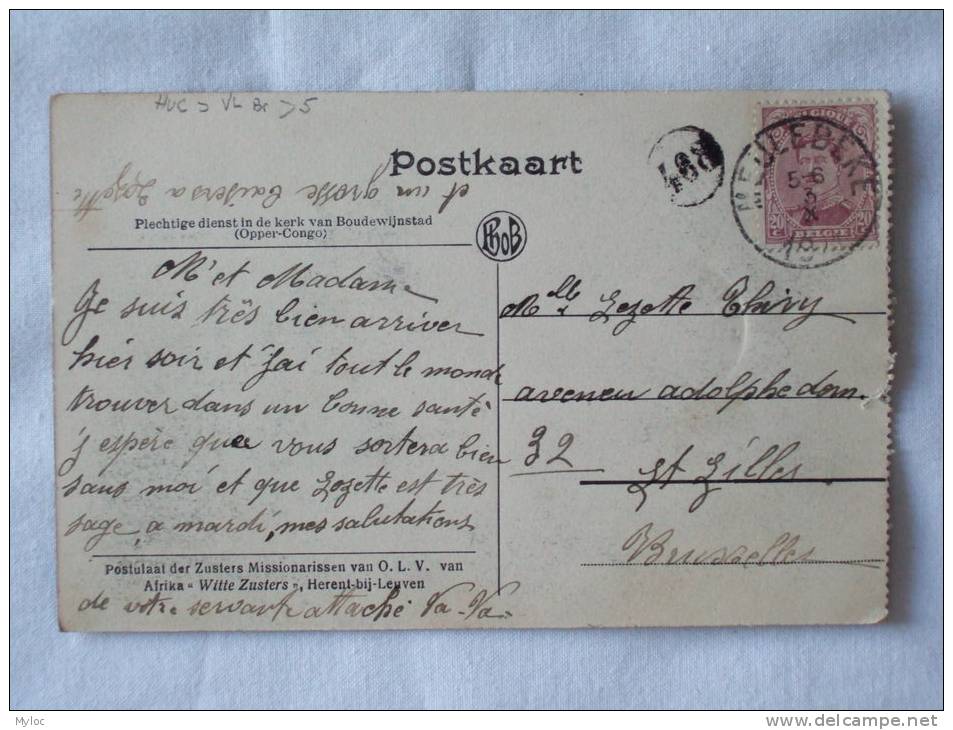 HVC > VL Br > 5
Postkaart
108
et un grosse baisers a Lozette
Plechtige dienst in de kerk van Boudewijnstad
(Opper-Congo)
PhoB
MEULEBEKE
5-6
BELGIQUE
20 BELGIE 20
Mr et Madame
Je suis très bien arriver
hier soir et j'ai tout le monde
trouver dans un bonne santé
j espère que vous sortera bien
sans moi et que Lozette est très
sage, a mardi, mes salutations
Postulaat der Zusters Missionarissen van O. L. V. van
Afrika « Witte Zusters », Herent-bij-Leuven
de votre servante attaché Va-Va-
Melle Lezette Thiry
aveneu adolphe dem.
32
St Gilles
Bruxelles
Myloc
www.delcampe.net